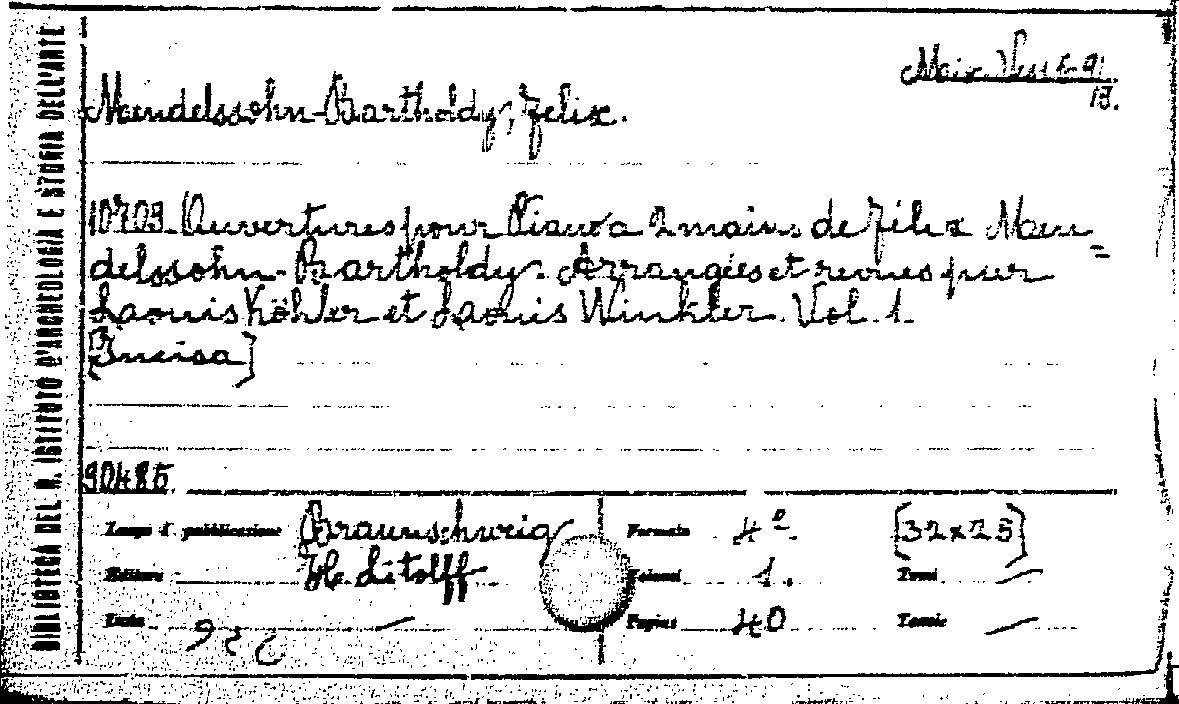 BIBLIOTECA DEL R. ISTITUTO D'ARCHEOLOGIA E STORIA DELL'ARTE
91
13.
Mendelssohn-Bartholdy, Felix.
10703. Ouvertures pour Piano a 2 mains de Félix Men=
delssohn-Bartholdy. Arrangées et revues par
Laouis Köhler et Laouis Winkler. Vol. 1.
[Incisa]
90485.
Luogo d. pubblicazione Braunschweig Formato 4º [32x25]
Editore H. Litolff Volumi 1. Tomi —
Data — Pagine 40 Tavole —